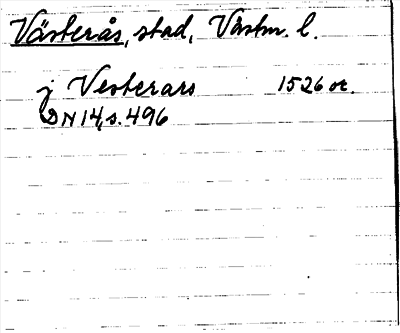 Västerås, stad, Västm. l.
j Vesterars 1526 or.
DN 14, s. 496